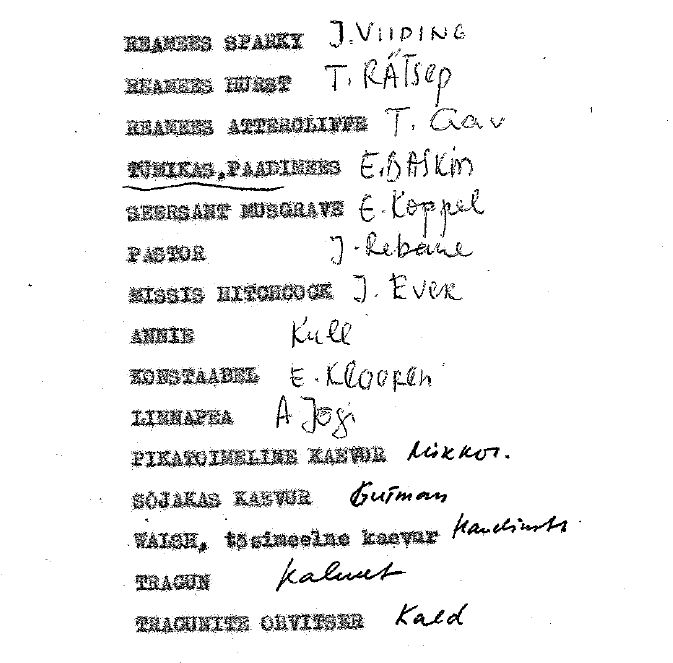 REAMEES SPARKY J. VIIDING
REAMEES HURST T. RÄTSEP
REAMEES ATTERCLIFFE T. Aav
TÜMIKAS, PAADIMEES E. BASKIN
SEERSANT MUSGRAVE E. Koppel
PASTOR J. Rebane
MISSIS HITCHCOCK J. EVER
ANNIE Kull
KONSTAABEL E. KLOOREN
LINNAPEA A Jõgi
PIKATOIMELINE KAEVUR Mikkor.
SÕJAKAS KAEVUR Gutman
WALSH, tõsimeelne kaevur
TRAGUN Kalmet
TRAGUNITE OHVITSER Kald